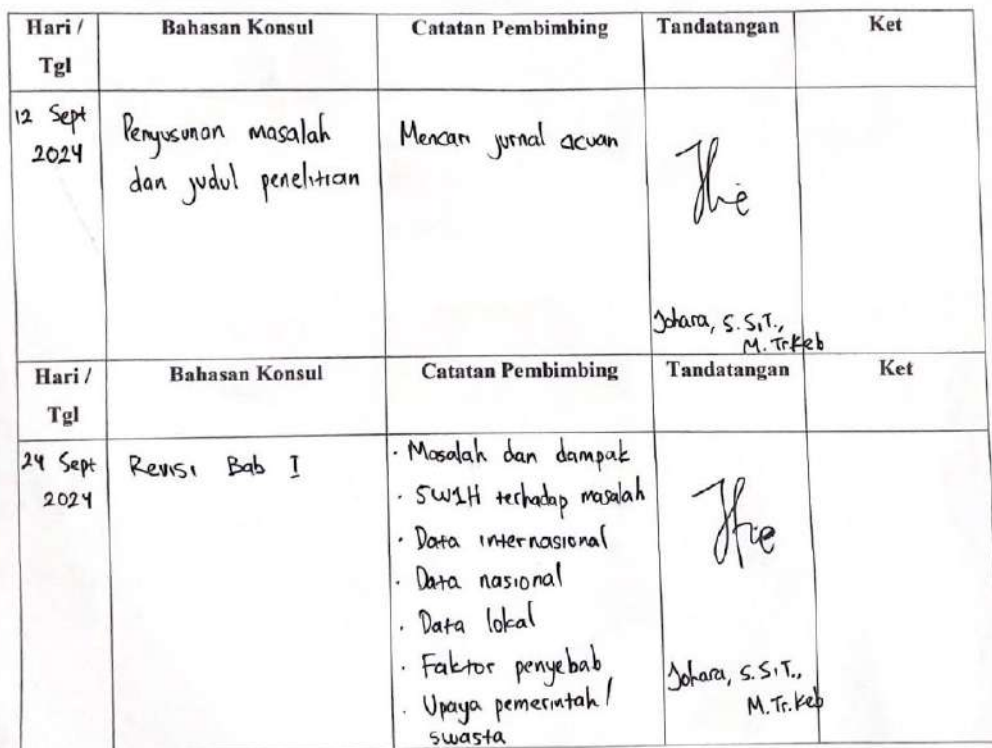 Hari / Bahasan Konsul Catatan Pembimbing Tandatangan Ket
Tgl
12 Sept
2024
Penyusunan masalah
dan judul penelitian
Mencari jurnal acuan
Johara, S.SiT.,
M.Tr.Keb
Hari / Bahasan Konsul Catatan Pembimbing Tandatangan Ket
Tgl
24 Sept
2024
Revisi Bab I
· Masalah dan dampak
· 5W1H terhadap masalah
· Data internasional
· Data nasional
· Data lokal
· Faktor penyebab
· Upaya pemerintah /
swasta
Johara, S.SiT.,
M.Tr.Keb